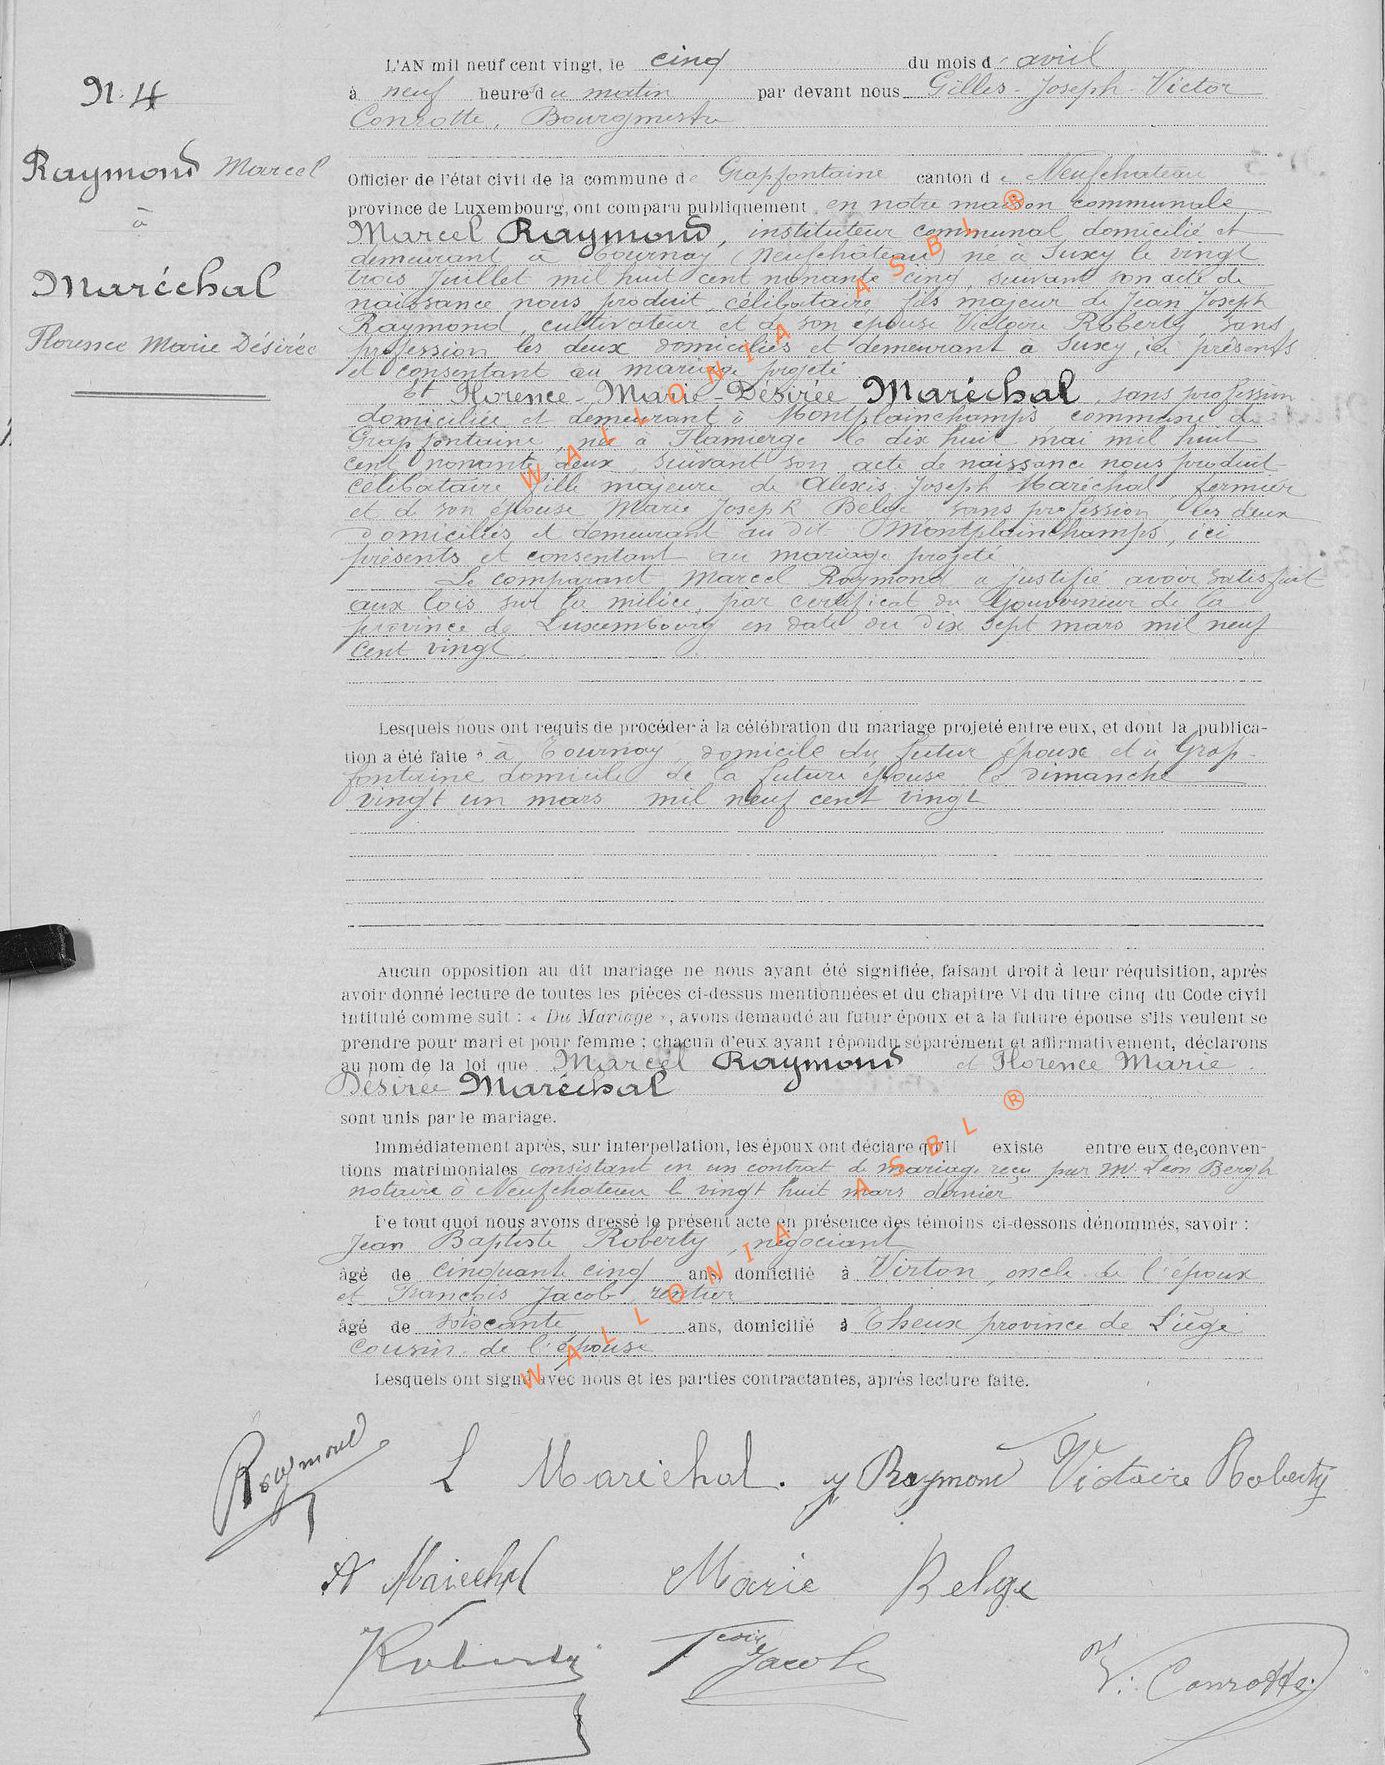 N. 4
Raymond Marcel
à
Maréchal
Florence Marie Désirée
L'AN mil neuf cent vingt, le cinq du mois d'avril
à neuf heure du matin par devant nous Gilles-Joseph-Victor
Conrotte, Bourgmestre
Officier de l'état civil de la commune de Grapfontaine canton de Neufchateau
province de Luxembourg, ont comparu publiquement en notre maison communale
Marcel Raymond, instituteur communal domicilié et
demeurant à Tournay (Neufchâteau) né à Suxy le vingt
trois Juillet mil huit cent nonante cinq, suivant son acte de
naissance nous produit, célibataire, fils majeur de Jean Joseph
Raymond, cultivateur et de son épouse Victoire Roberty, sans
profession les deux domiciliés et demeurant à Suxy, ici présents
et consentant au mariage projeté
Et Florence-Marie-Désirée Maréchal, sans profession
domiciliée et demeurant à Montplainchamps commune de
Grapfontaine, née à Flamierge le dix huit mai mil huit
cent nonante deux, suivant son acte de naissance nous produit
célibataire fille majeure de Alexis Joseph Maréchal, fermier
et de son épouse Marie Joseph Belge sans profession les deux
domiciliés et demeurant au dit Montplainchamps, ici
présents et consentant au mariage projeté
Le comparant Marcel Raymond a justifié avoir satisfait
aux lois sur la milice, par certificat du Gouverneur de la
province de Luxembourg en date du dix sept mars mil neuf
cent vingt.
Lesquels nous ont requis de procéder à la célébration du mariage projeté entre eux, et dont la publica-
tion a été faite à Tournay, domicile du futur époux et à Grap-
fontaine domicile de la future épouse le dimanche
vingt un mars mil neuf cent vingt
Aucun opposition au dit mariage ne nous ayant été signifiée, faisant droit à leur réquisition, après
avoir donné lecture de toutes les pièces ci-dessus mentionnées et du chapitre VI du titre cinq du Code civil
intitulé comme suit : « Du Mariage », avons demandé au futur époux et à la future épouse s'ils veulent se
prendre pour mari et pour femme ; chacun d'eux ayant répondu séparément et affirmativement, déclarons
au nom de la loi que Marcel Raymond et Florence Marie
Désirée Maréchal
sont unis par le mariage.
Immédiatement après, sur interpellation, les époux ont déclare qu'il existe entre eux de conven-
tions matrimoniales consistant en un contrat de mariage reçu par Mr. Léon Bergh
notaire à Neufchateau le vingt huit mars dernier
De tout quoi nous avons dressé le présent acte en présence des témoins ci-dessons dénommés, savoir :
Jean Baptiste Roberty, négociant
âgé de cinquante cinq ans, domicilié à Virton, oncle de l'époux
et François Jacob, rentier
âgé de soixante ans, domicilié à Theux province de Liège
cousin de l'épouse
Lesquels ont signé avec nous et les parties contractantes, après lecture faite.
Raymond
L Maréchal. J Raymond Victoire Roberty
A Maréchal Marie Belge
Roberty Fcois Jacob V. Conrotte
WALLONIA ASBL ®
WALLONIA ASBL ®